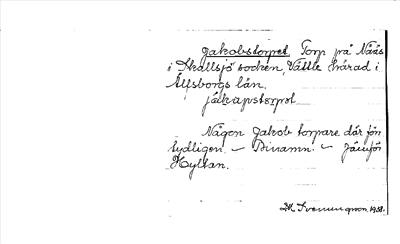 Jakobstorpet. Torp på Nääs
i Skallsjö socken, Vättle härad i
Älfsborgs län.
jäkapstorpet
Någon Jakob torpare där för
tydligen. – Binamn. – Jämför
Hyltan.
1938.